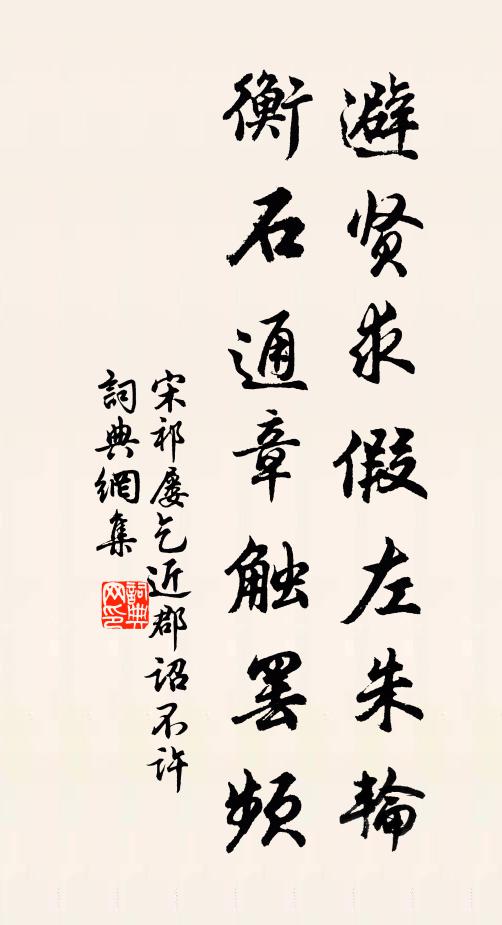 避贤求假左朱轮
衡石通章触罢频
宋祁屡乞近郡诏不许
詞典網集
詞典网印